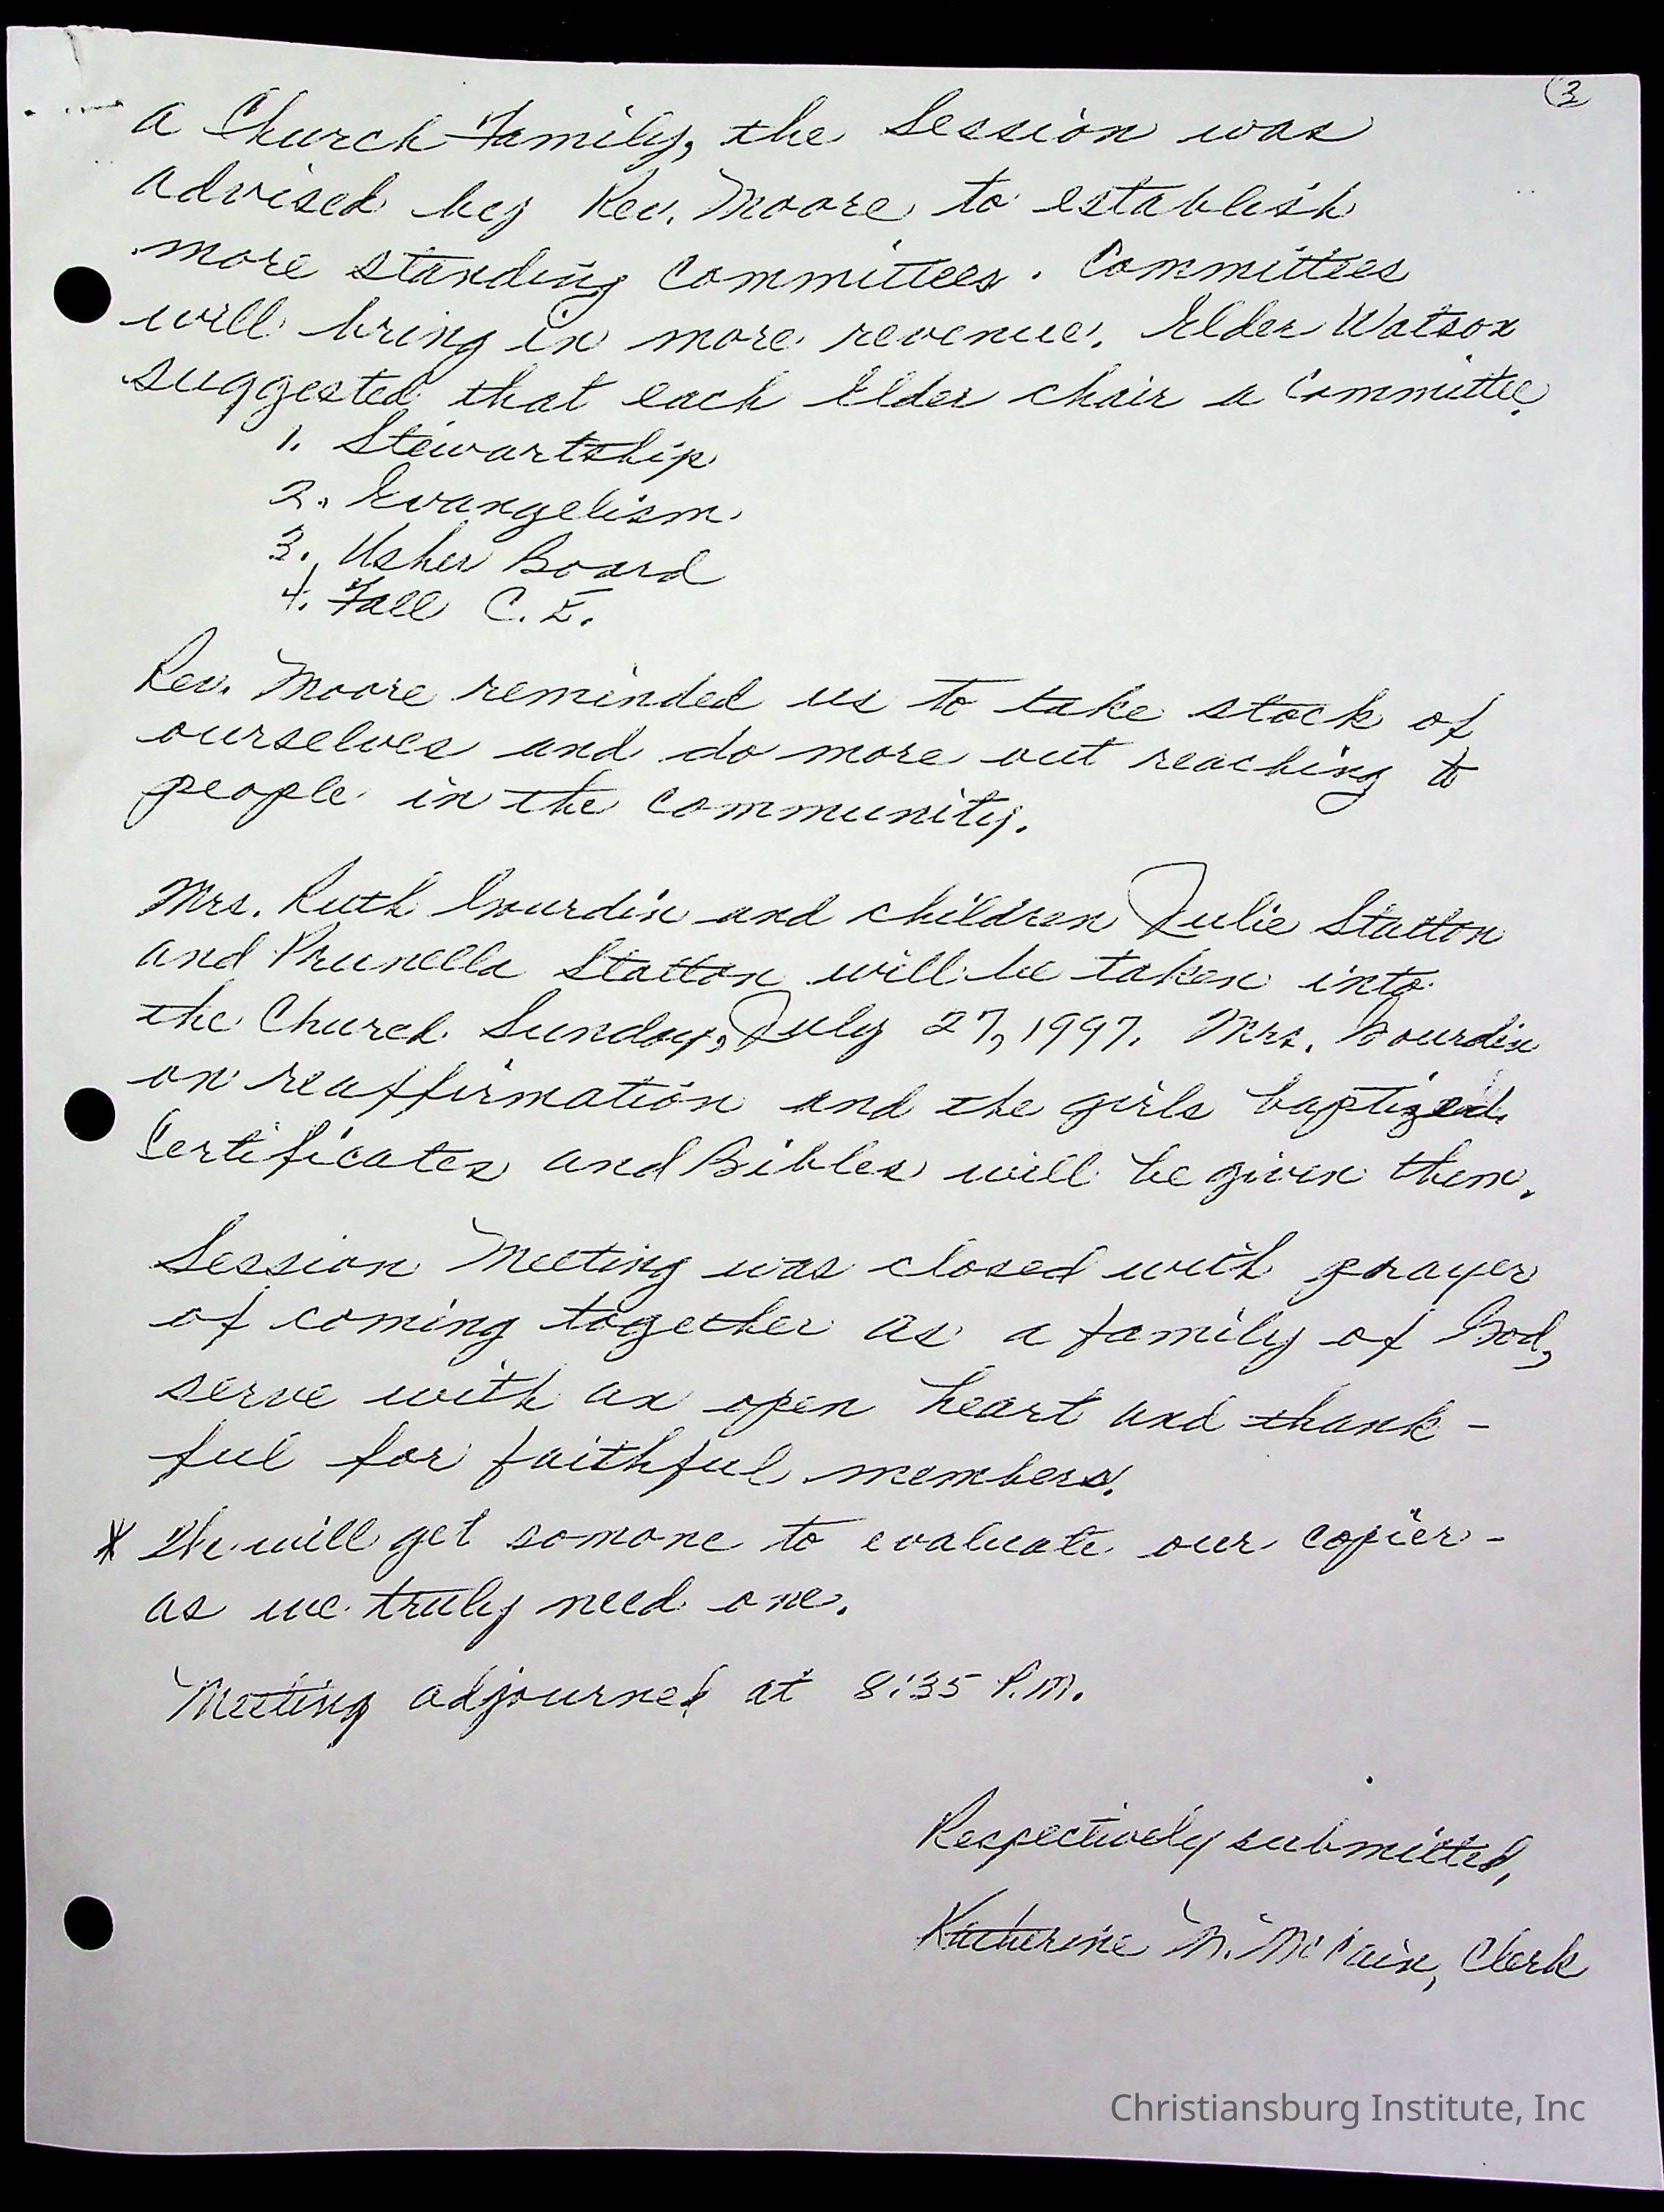 3
a Church Family, the Session was
advised by Rev. Moore to establish
more standing Committees. Committees
will bring in more revenue. Elder Watson
suggested that each Elder chair a Committee.
1. Stewartship
2. Evangelism
3. Usher Board
4. Fall C.E.
Rev. Moore reminded us to take stock of
ourselves and do more out reaching to
people in the community.
Mrs. Ruth Gourdin and children Julie Statton
and Prunella Statton will be taken into
the Church Sunday, July 27, 1997. Mrs. Gourdin
on reaffirmation and the girls baptized.
Certificates and Bibles will be given them.
Session Meeting was closed with prayer
of coming together as a family of God,
serve with an open heart and thank-
ful for faithful members.
* We will get somone to evaluate our copier-
as we truly need one.
Meeting adjourned at 8:35 P.M.
Respectively submitted,
Katherine N. McCain, Clerk
Christiansburg Institute, Inc